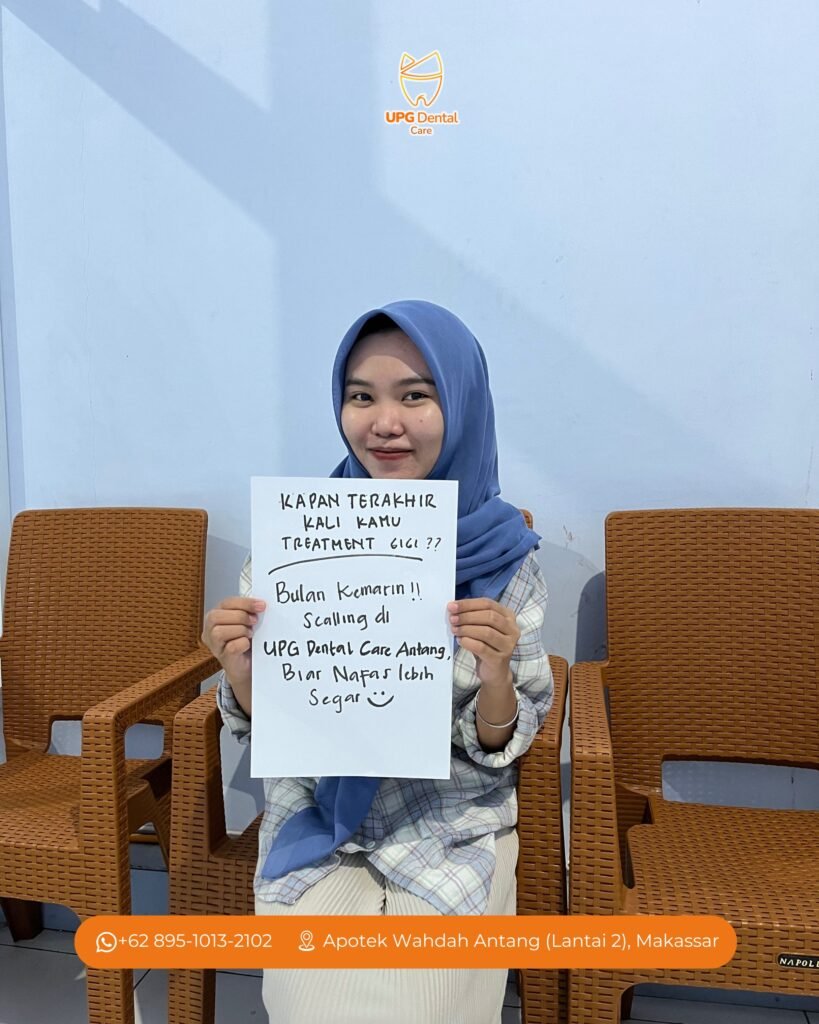 UPG Dental
Care
KAPAN TERAKHIR
KALI KAMU
TREATMENT GIGI ??
Bulan Kemarin !!
Scalling di
UPG Dental Care Antang,
Biar Nafas lebih
Segar
+62 895-1013-2102
Apotek Wahdah Antang (Lantai 2), Makassar